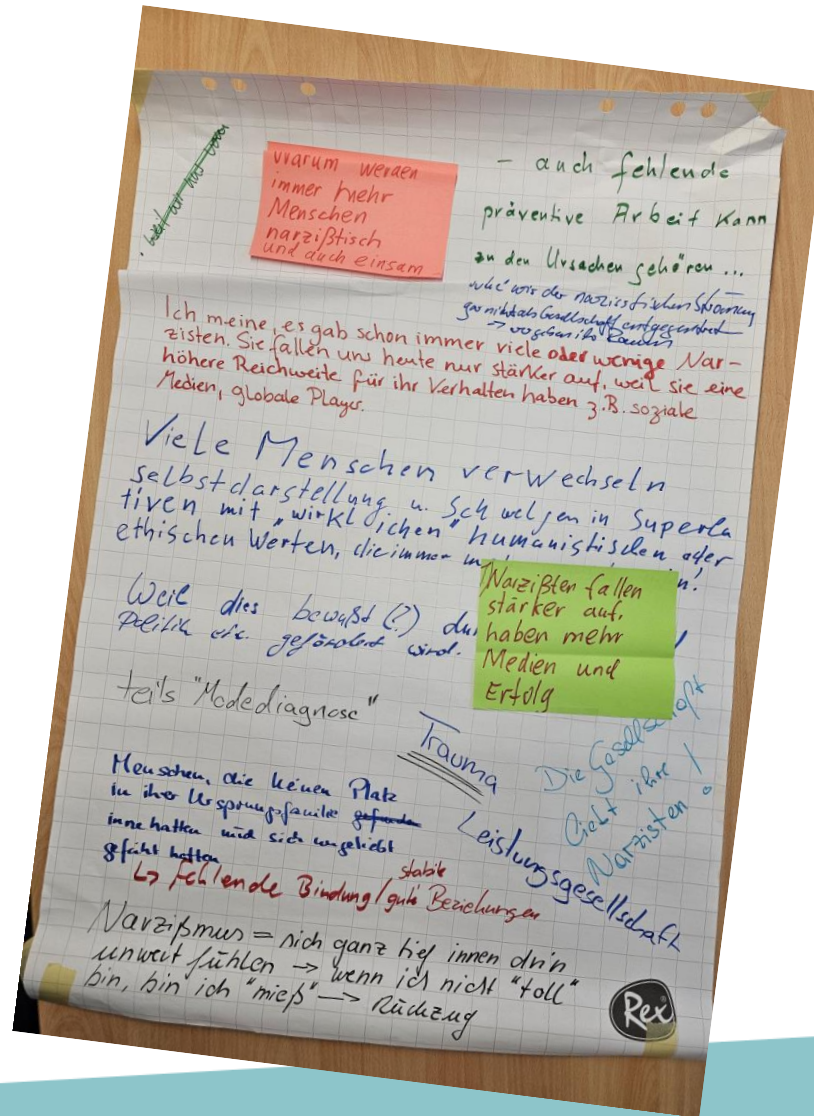 Warum werden
immer mehr
Menschen
narzißtisch
und auch einsam
– auch fehlende
präventive Arbeit kann
zu den Ursachen gehören ...
wir der narzisstischen Strömung
gar nicht als Gesellschaft entgegentreten
→ wo geben ihr Raum
Ich meine, es gab schon immer viele oder wenige Nar-
zisten. Sie fallen uns heute nur stärker auf, weil sie eine
höhere Reichweite für ihr Verhalten haben z.B. soziale
Medien, globale Player.
Viele Menschen verwechseln
selbstdarstellung u. Schwelgen in Superla
tiven mit "wirklichen" humanistischen oder
ethischen Werten, die immer
Weil dies bewußt (?)
Politik etc. gefördert wird.
Narzißten fallen
stärker auf,
haben mehr
Medien und
Erfolg
teils "Modediagnose"
Trauma
Die Gesellschaft
liebt ihre
Narzisten!
Leistungsgesellschaft
Menschen, die keinen Platz
in ihrer Ursprungsfamilie gefunden
inne hatten und sich ungeliebt
gefühlt hatten
↳ fehlende Bindung / gute stabile Beziehungen
Narzißmus = sich ganz tief innen drin
unwert fühlen → wenn ich nicht "toll"
bin, bin ich "mieß" → Rückzug
Rex